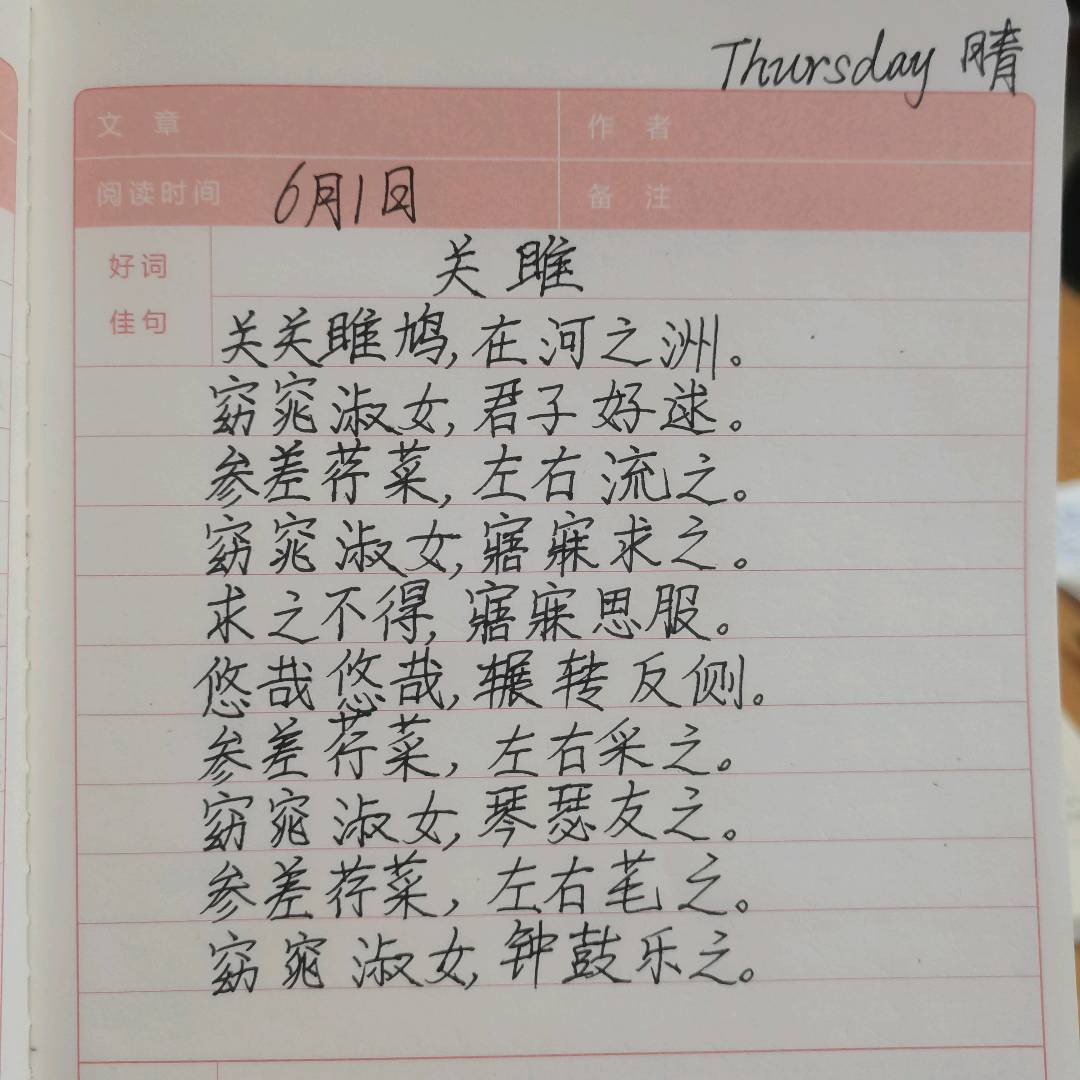 Thursday 晴
文 章 作 者
阅读时间 6月1日 备 注
好词 关雎
佳句 关关雎鸠,在河之洲。
窈窕淑女,君子好逑。
参差荇菜,左右流之。
窈窕淑女,寤寐求之。
求之不得,寤寐思服。
悠哉悠哉,辗转反侧。
参差荇菜,左右采之。
窈窕淑女,琴瑟友之。
参差荇菜,左右芼之。
窈窕淑女,钟鼓乐之。